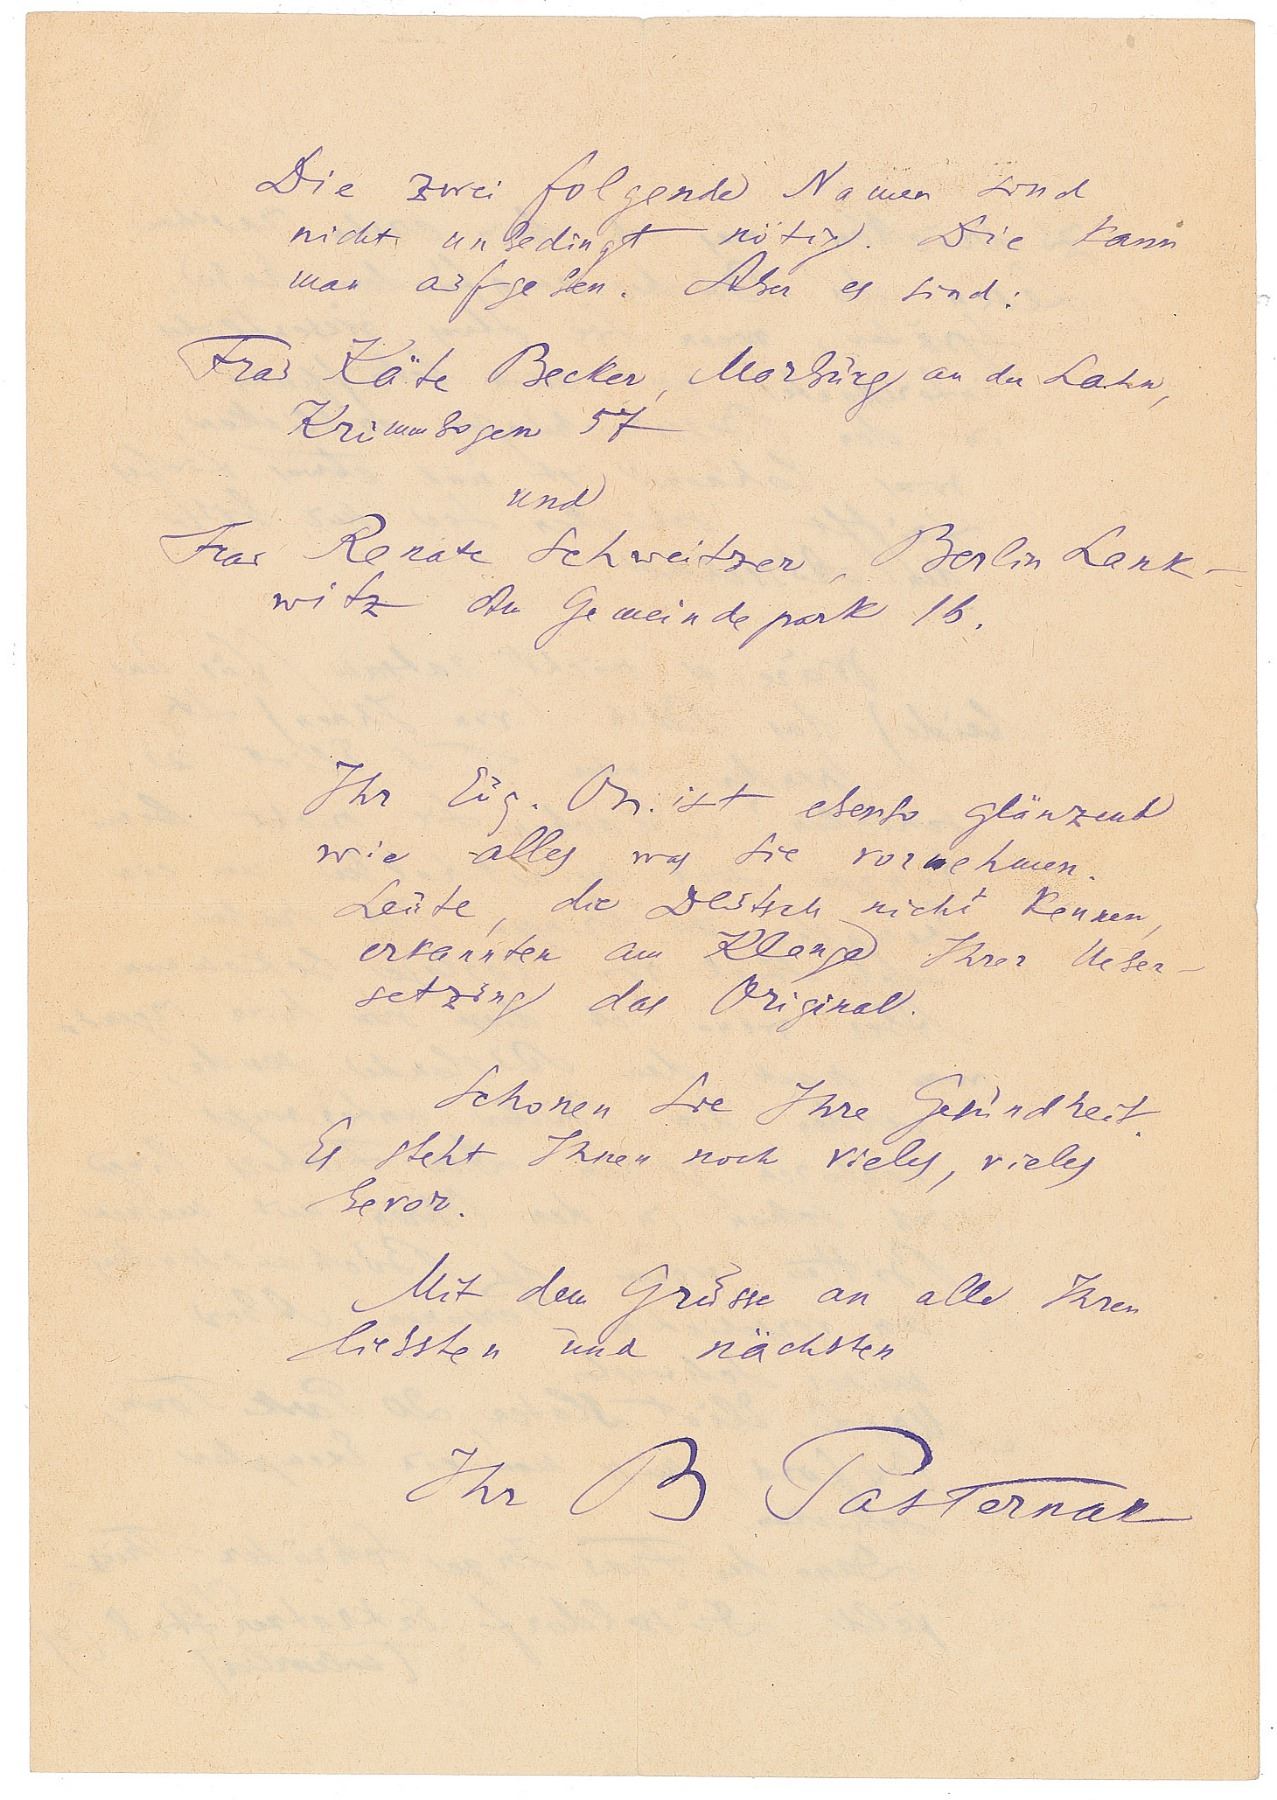 Die zwei folgende Namen sind
nicht unbedingt nötig. Die kann
man aufgeben. Aber es sind:
Frau Käte Becker, Marburg an der Lahn,
Krummbogen 57
und
Frau Renate Schweitzer, Berlin Lank-
witz Am Gemeindepark 16.
Ihr Eug. On. ist ebenso glänzend
wie alles was Sie vornehmen.
Leute, die Deutsch nicht kennen,
erkannten am Klange Ihrer Ueber-
setzung das Original.
Schonen Sie Ihre Gesundheit.
Es steht Ihnen noch vieles, vieles
bevor.
Mit dem Grusse an alle Ihren
liebsten und nächsten
Ihr B Pasternak